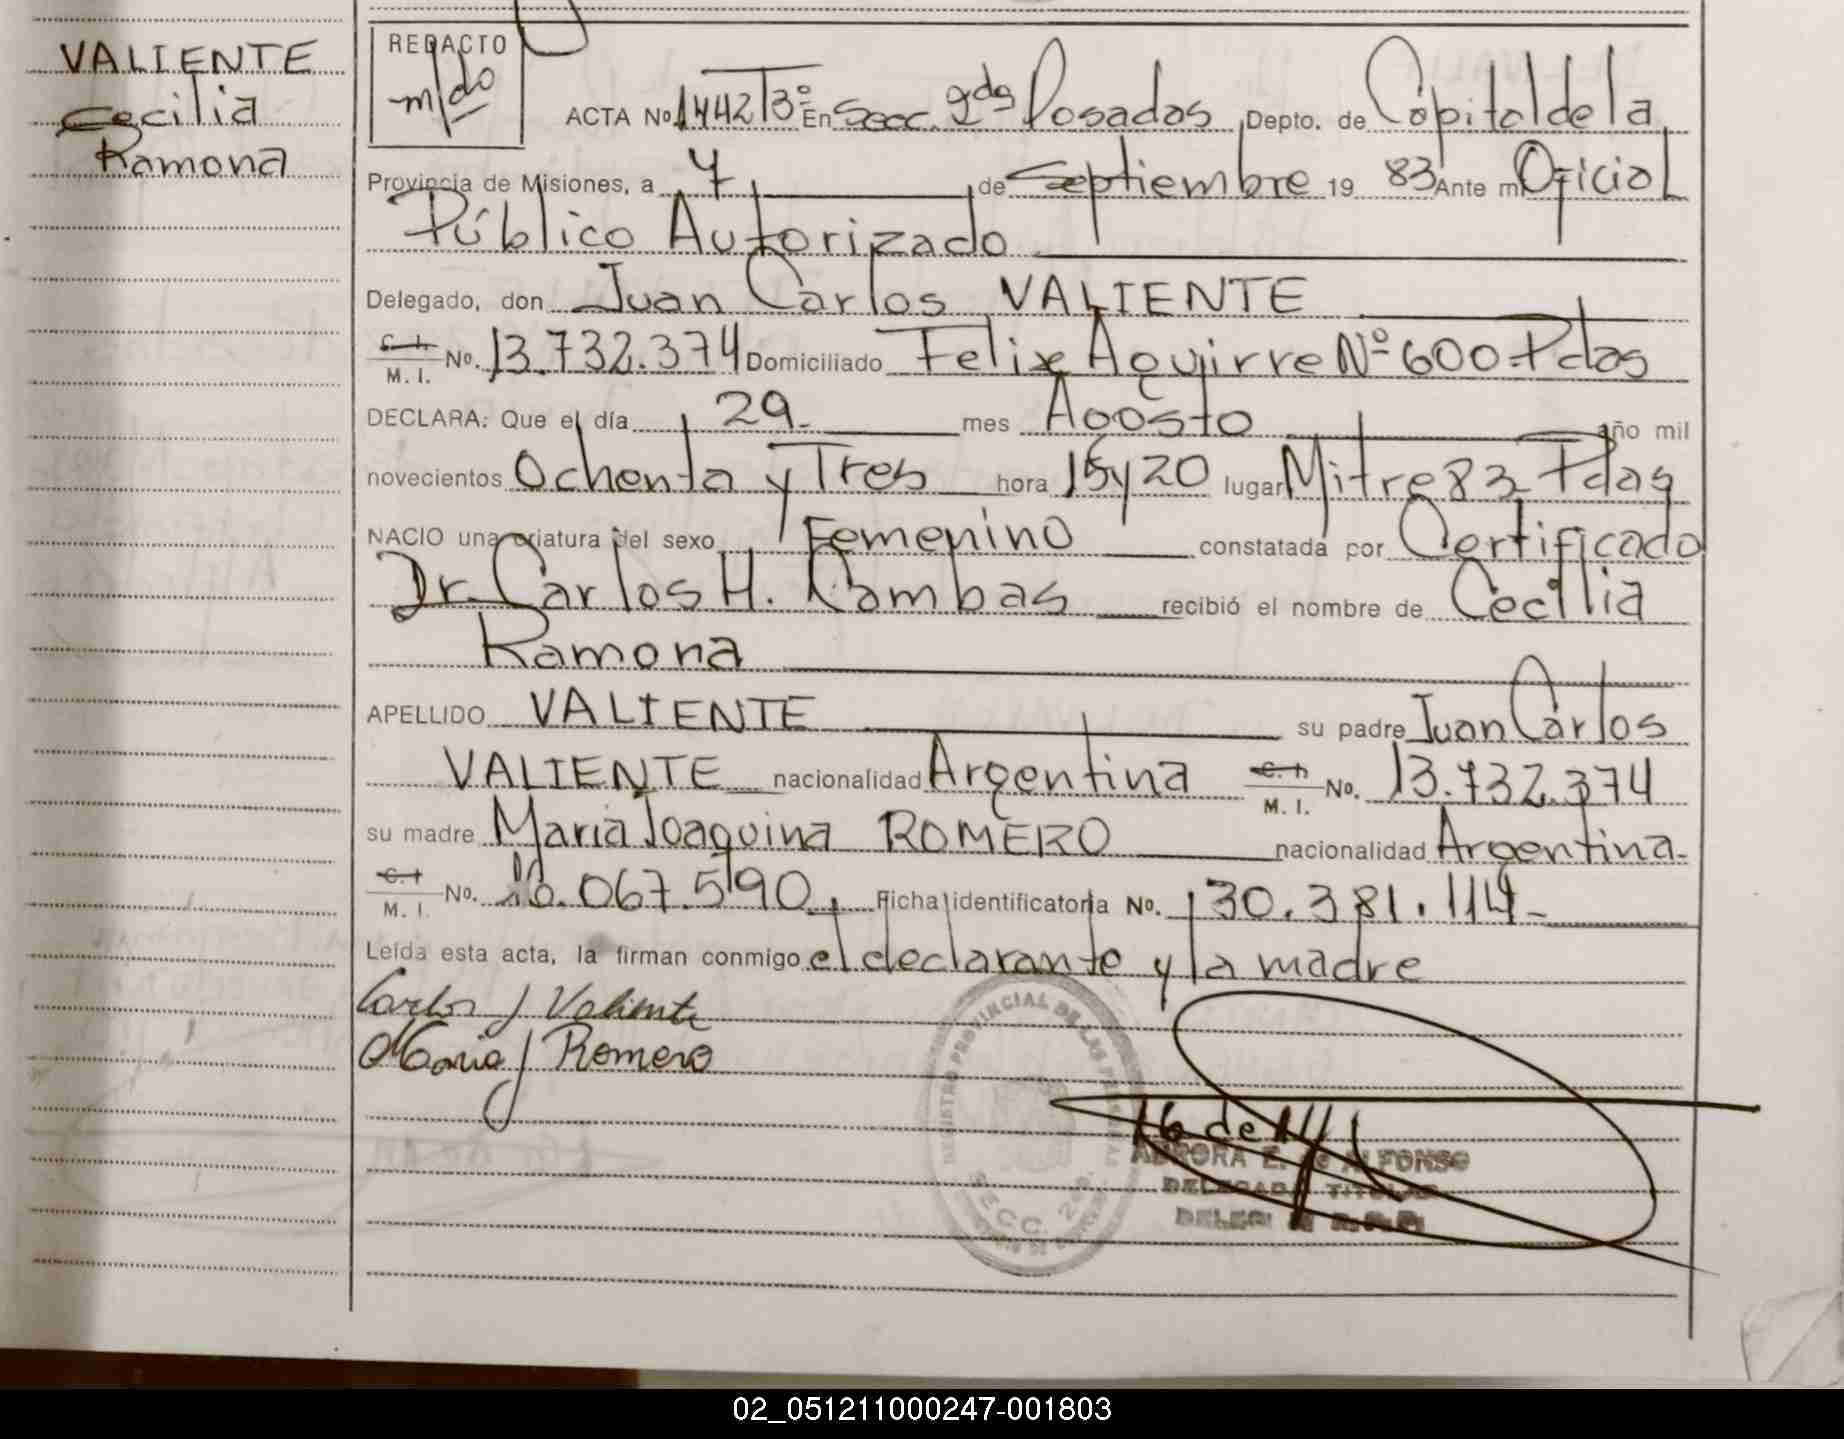 VALIENTE
Cecilia
Ramona
REDACTO
m/do
ACTA Nº 1442 Tº3º En Secc. 2da Posadas, Depto. de Capital de la
Provincia de Misiones, a 7 de Septiembre 19 83 Ante mí Oficial
Público Autorizado
Delegado, don Juan Carlos VALIENTE
C. I. M. I. Nº. 13.732.374 Domiciliado Felix Aguirre Nº 600 - Pdas
DECLARA: Que el día 29 mes Agosto año mil
novecientos Ochenta y Tres hora 15 y 20 lugar Mitre 83 Pdas
NACIO una criatura del sexo Femenino constatada por Certificado
Dr. Carlos H. Cambas recibió el nombre de Cecilia
Ramona
APELLIDO VALIENTE su padre Juan Carlos
VALIENTE nacionalidad Argentina C. I. M. I. Nº. 13.732.374
su madre Maria Joaquina ROMERO nacionalidad Argentina-
C. I. M. I. Nº. 16.067.590, Ficha identificatoria Nº. 30.381.114-
Leída esta acta, la firman conmigo el declarante y la madre
Carlos J Valiente
Maria J Romero
REGISTRO PROVINCIAL DE LAS PERSONAS
SECC. 2da.
AURORA E. de ALFONSO
DELEGADA TITULAR
02_051211000247-001803